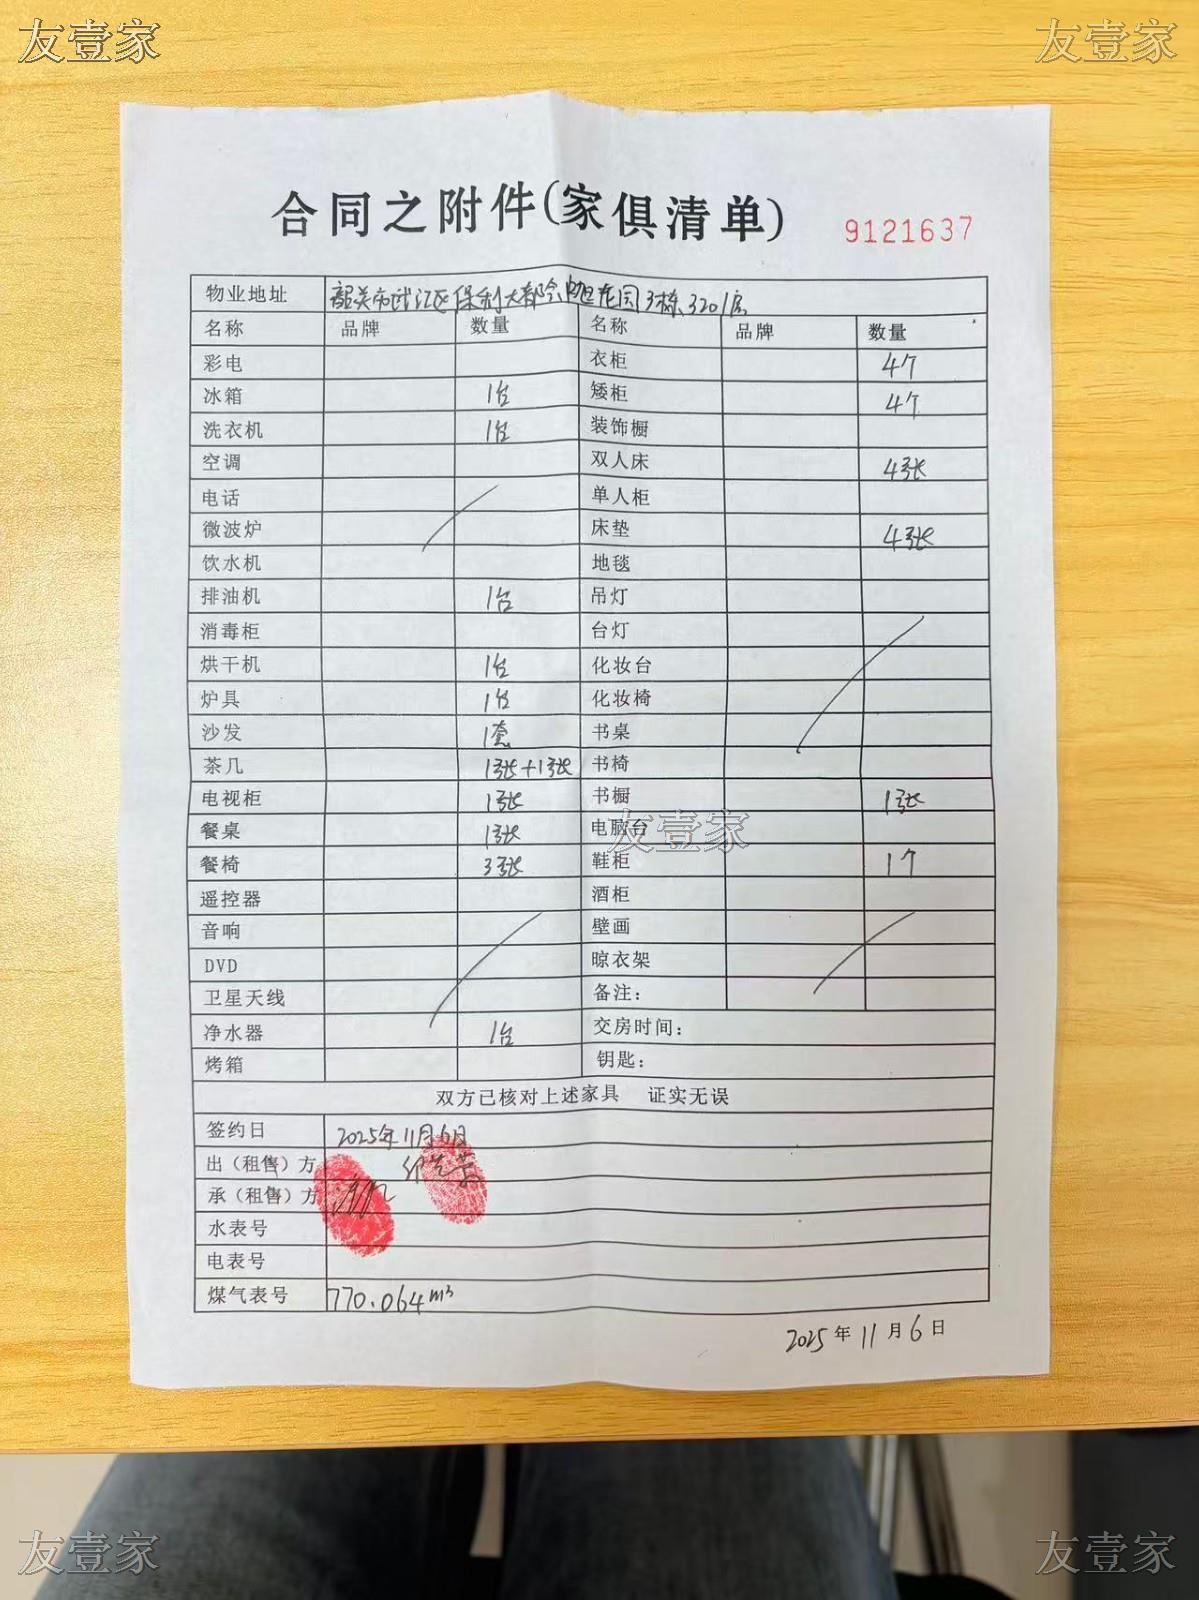 友壹家 友壹家
合同之附件(家俱清单) 9121637
物业地址 韶关市武江区保利大都会 花园3栋3201房
名称 品牌 数量 名称 品牌 数量
彩电 衣柜 4个
冰箱 1台 矮柜 4个
洗衣机 1台 装饰橱
空调 双人床 4张
电话 单人柜
微波炉 床垫 4张
饮水机 地毯
排油机 1台 吊灯
消毒柜 台灯
烘干机 1台 化妆台
炉具 1台 化妆椅
沙发 1套 书桌
茶几 1张+1张 书椅
电视柜 1张 书橱 1张
餐桌 1张 电脑台
友壹家
餐椅 3张 鞋柜 1个
遥控器 酒柜
音响 壁画
DVD 晾衣架
卫星天线 备注：
净水器 1台 交房时间：
烤箱 钥匙：
双方已核对上述家具 证实无误
签约日 2025年11月6日
出（租售）方
承（租售）方
水表号
电表号
煤气表号 770.064m³
2025年11月6日
友壹家 友壹家